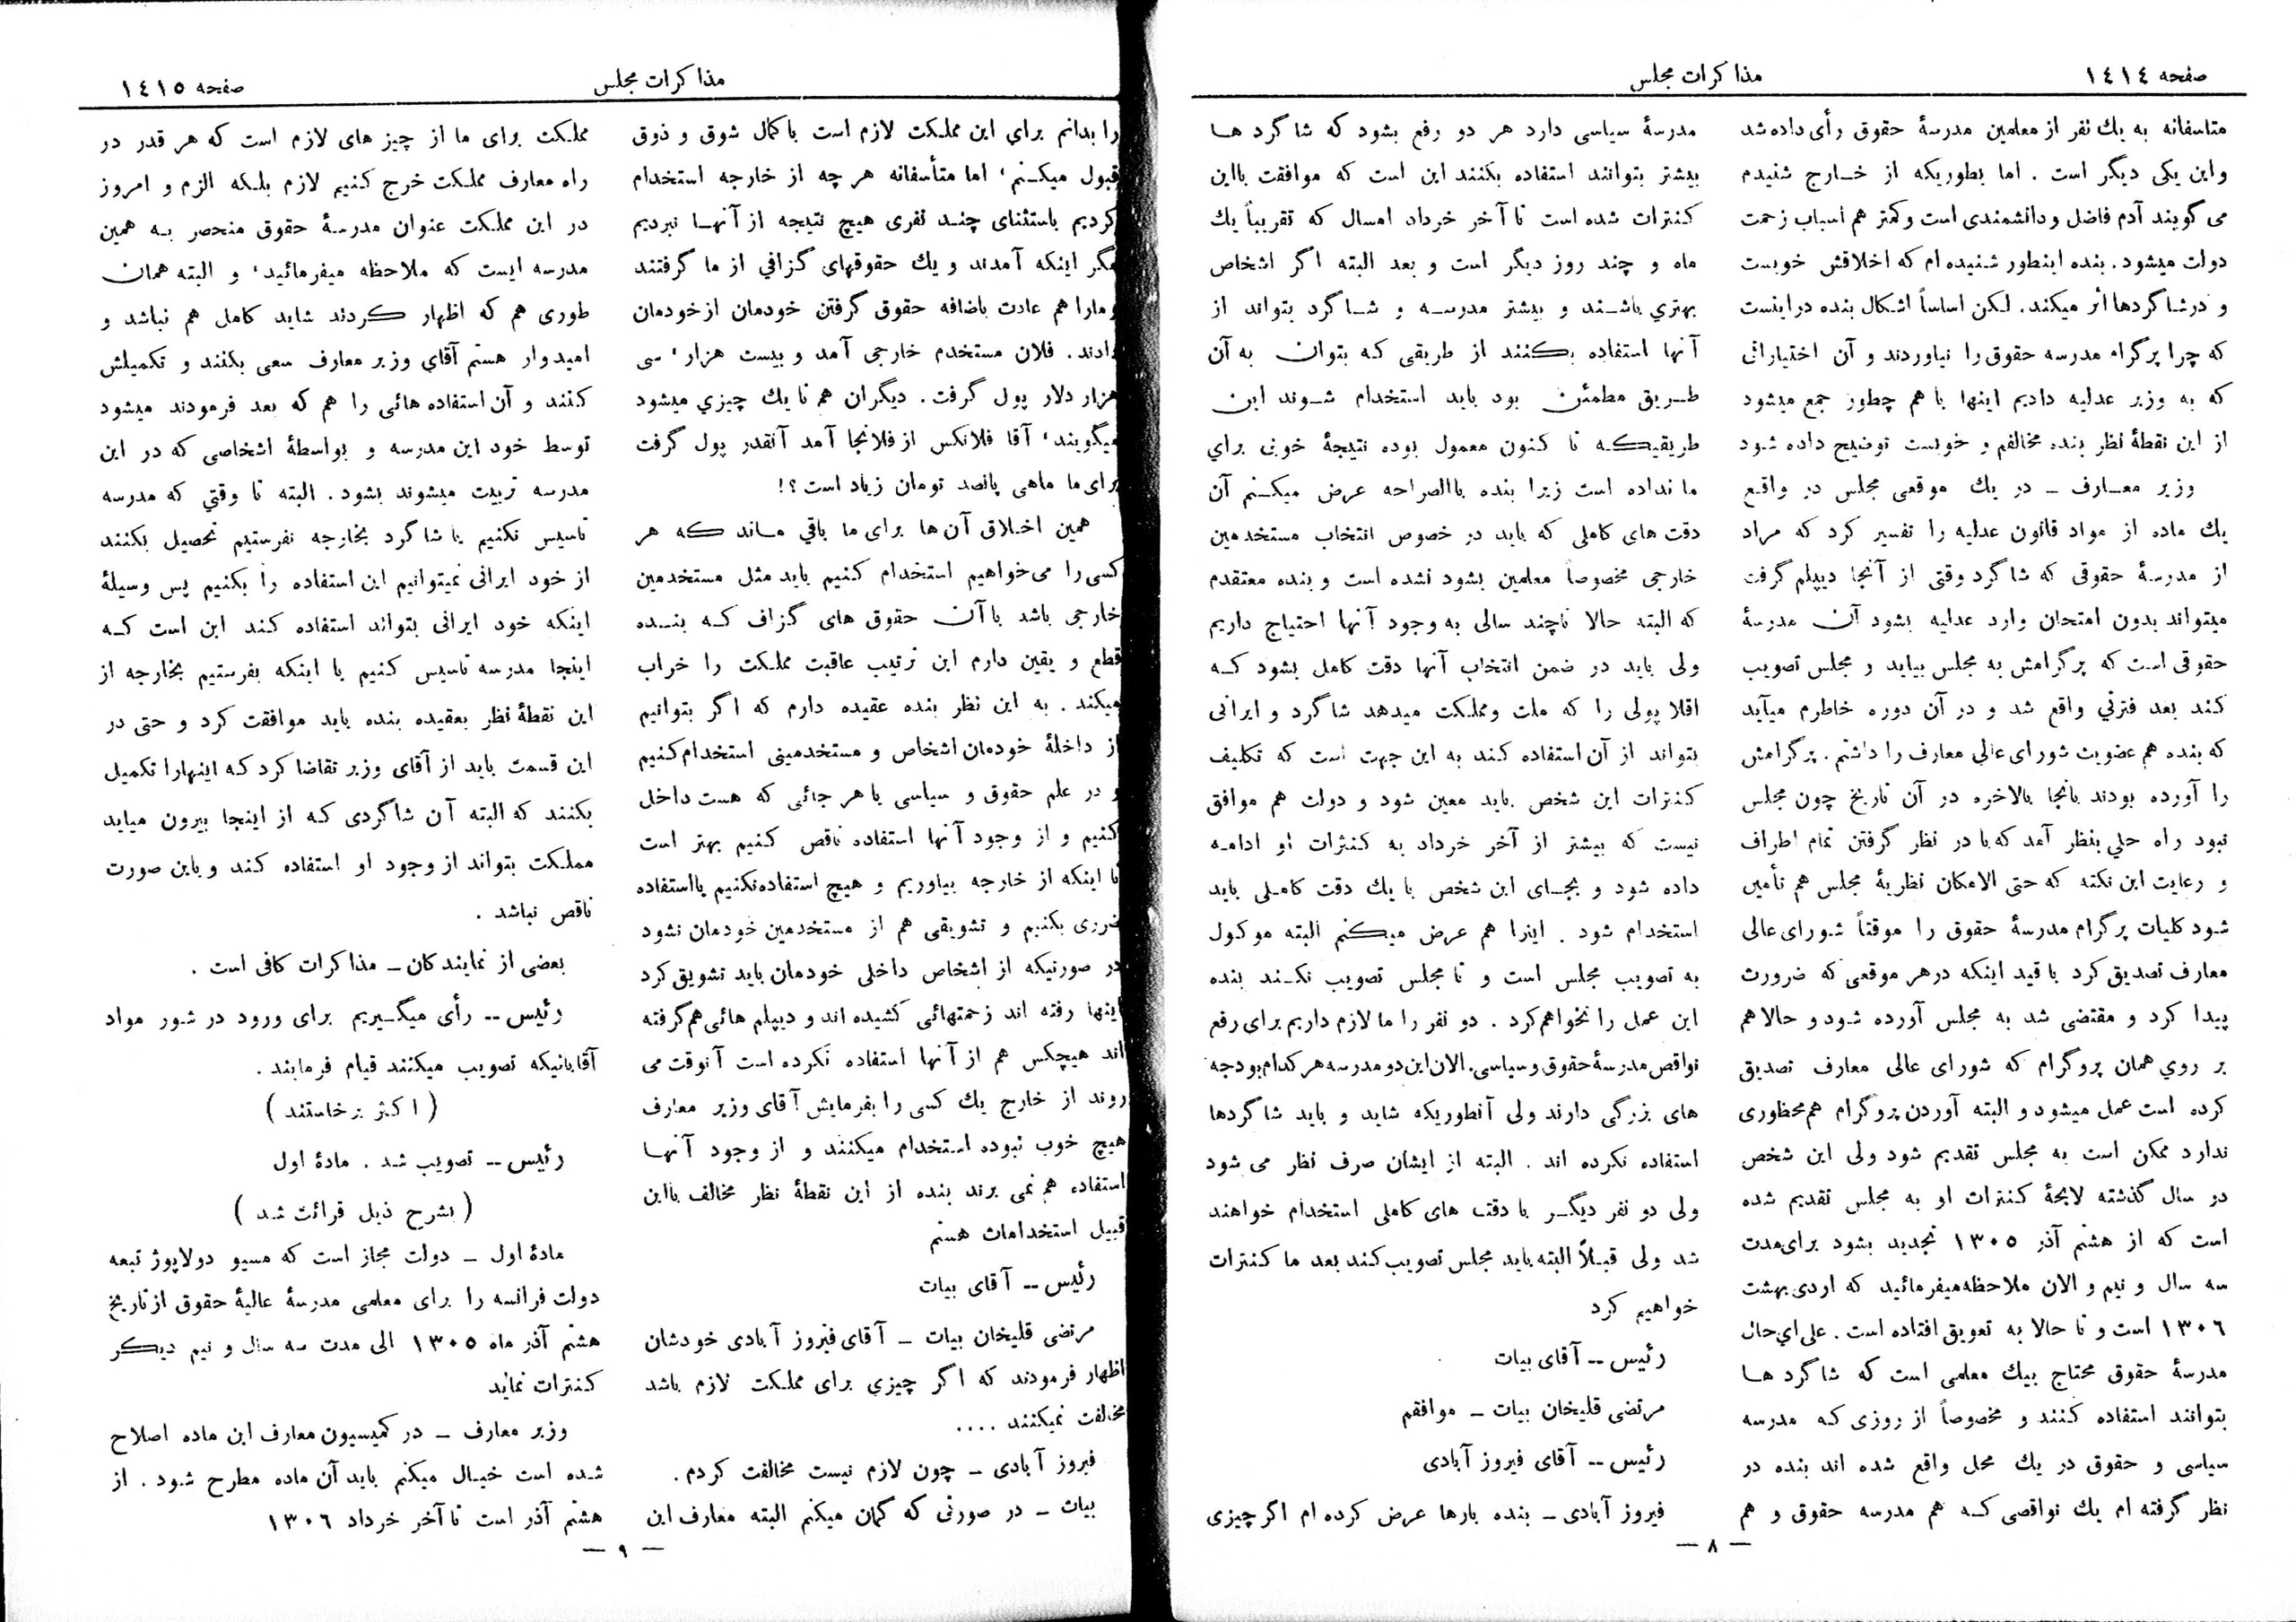 صفحه ١٤١٤
مذاکرات مجلس
متاسفانه به یك نفر از معلمین مدرسهٔ حقوق رأی داده شد
واین یکی دیگر است . اما بطوریکه از خارج شنیدم
می گویند آدم فاضل و دانشمندی است وکمتر هم اسباب زحمت
دولت میشود . بنده اینطور شنیده ام که اخلاقش خوبست
و درشاگردها اثر میکند . لکن اساساً اشکال بنده دراینست
که چرا پرگرام مدرسه حقوق را نیاوردند و آن اختیاراتی
که به وزیر عدلیه دادیم اینها با هم چطور جمع میشود
از این نقطهٔ نظر بنده مخالفم و خوبست توضیح داده شود
وزیر معارف ــ در یك موقعی مجلس در واقع
یك ماده از مواد قانون عدلیه را تفسیر کرد که مراد
از مدرسهٔ حقوقی که شاگرد وقتی از آنجا دیپلم گرفت
میتواند بدون امتحان وارد عدلیه بشود آن مدرسهٔ
حقوقی است که پرگرامش به مجلس بیاید و مجلس تصویب
کند بعد فترتی واقع شد و در آن دوره خاطرم میآید
که بنده هم عضویت شورای عالی معارف را داشتم . پرگرامش
را آورده بودند بانجا بالاخره در آن تاریخ چون مجلس
نبود راه حلی بنظر آمد که با در نظر گرفتن تمام اطراف
و رعایت این نکته که حتی الامکان نظریهٔ مجلس هم تأمین
شود کلیات پرگرام مدرسهٔ حقوق را موقتاً شورای عالی
معارف تصدیق کرد با قید اینکه درهر موقعی که ضرورت
پیدا کرد و مقتضی شد به مجلس آورده شود و حالا هم
بر روي همان پروگرام که شورای عالی معارف تصدیق
کرده است عمل میشود و البته آوردن پروگرام هم محظوری
ندارد ممکن است به مجلس تقدیم شود ولی این شخص
در سال گذشته لایحهٔ کنترات او به مجلس تقدیم شده
است که از هشتم آذر ١٣٠٥ تجدید بشود برای مدت
سه سال و نیم و الان ملاحظه میفرمائید که اردی بهشت
١٣٠٦ است و تا حالا به تعویق افتاده است . علی اي حال
مدرسهٔ حقوق محتاج بیك معلمی است که شاگرد ها
بتوانند استفاده کنند و مخصوصاً از روزی که مدرسه
سیاسی و حقوق در یك محل واقع شده اند بنده در
نظر گرفته ام یك نواقصی که هم مدرسه حقوق و هم
مدرسهٔ سیاسی دارد هر دو رفع بشود که شاگرد ها
بیشتر بتوانند استفاده بکنند این است که موافقت بااین
کنترات شده است تا آخر خرداد امسال که تقریباً یك
ماه و چند روز دیگر است و بعد البته اگر اشخاص
بهتري باشند و بیشتر مدرسه و شاگرد بتواند از
آنها استفاده بکنند از طریقی که بتوان به آن
طریق مطمئن بود باید استخدام شوند این
طریقیکه تا کنون معمول بوده نتیجهٔ خوبی براي
ما نداده است زیرا بنده باالصراحه عرض میکنم آن
دقت های کاملی که باید در خصوص انتخاب مستخدمین
خارجی مخصوصاً معلمین بشود نشده است و بنده معتقدم
که البته حالا تاچند سالی به وجود آنها احتیاج داریم
ولی باید در ضمن انتخاب آنها دقت کامل بشود که
اقلا پولی را که ملت ومملکت میدهد شاگرد و ایرانی
بتواند از آن استفاده کند به این جهت است که تکلیف
کنترات این شخص باید معین شود و دولت هم موافق
نیست که بیشتر از آخر خرداد به کنترات او ادامه
داده شود و بجای این شخص با یك دقت کاملی باید
استخدام شود . اینرا هم عرض میکنم البته موکول
به تصویب مجلس است و تا مجلس تصویب نکند بنده
این عمل را نخواهم کرد . دو نفر را ما لازم داریم برای رفع
نواقص مدرسهٔ حقوق و سیاسی . الان این دو مدرسه هر کدام بودجه
های بزرگی دارند ولی آنطوریکه شاید و باید شاگردها
استفاده نکرده اند . البته از ایشان صرف نظر می شود
ولی دو نفر دیگر با دقت های کاملی استخدام خواهند
شد ولی قبلاً البته باید مجلس تصویب کند بعد ما کنترات
خواهیم کرد
رئیس ــ آقای بیات
مرتضی قلیخان بیات ــ موافقم
رئیس ــ آقای فیروز آبادی
فیروز آبادی ــ بنده بارها عرض کرده ام اگر چیزی
— ٨ —
مذاکرات مجلس
صفحه ١٤١٥
را بدانم براي این مملکت لازم است باکمال شوق و ذوق
قبول میکنم ، اما متأسفانه هر چه از خارجه استخدام
کردیم باستثنای چند نفری هیچ نتیجه از آنها نبردیم
مگر اینکه آمدند و یك حقوقهای گزافي از ما گرفتند
ومارا هم عادت باضافه حقوق گرفتن خودمان از خودمان
دادند . فلان مستخدم خارجی آمد و بیست هزار ، سی
هزار دلار پول گرفت . دیگران هم تا یك چیزي میشود
میگویند ، آقا فلانکس از فلانجا آمد آنقدر پول گرفت
برای ما ماهی پانصد تومان زیاد است ؟!
همین اخلاق آن ها برای ما باقي ماند که هر
کسی را می خواهیم استخدام کنیم باید مثل مستخدمین
خارجی باشد باآن حقوق های گزاف که بنده
قطع و یقین دارم این ترتیب عاقبت مملکت را خراب
میکند . به این نظر بنده عقیده دارم که اگر بتوانیم
از داخلهٔ خودمان اشخاص و مستخدمینی استخدام کنیم
و در علم حقوق و سیاسی یا هر جائی که هست داخل
کنیم و از وجود آنها استفاده ناقص کنیم بهتر است
تا اینکه از خارجه بیاوریم و هیچ استفاده نکنیم یااستفاده
ضرری بکنیم و تشویقی هم از مستخدمین خودمان نشود
در صورتیکه از اشخاص داخلی خودمان باید تشویق کرد
اینها رفته اند زحمتهائی کشیده اند و دیپلم هائی هم گرفته
اند هیچکس هم از آنها استفاده نکرده است آنوقت می
روند از خارج یك کسی را بفرمایش آقای وزیر معارف
هیچ خوب نبوده استخدام میکنند و از وجود آنها
استفاده هم نمی برند بنده از این نقطهٔ نظر مخالف بااین
قبیل استخدامات هستم
رئیس ــ آقای بیات
مرتضی قلیخان بیات ــ آقای فیروز آبادی خودشان
اظهار فرمودند که اگر چیزي برای مملکت لازم باشد
مخالفت نمیکنند ....
فیروز آبادی ــ چون لازم نیست مخالفت کردم .
بیات ــ در صورتی که گمان میکنم البته معارف این
مملکت برای ما از چیز های لازم است که هر قدر در
راه معارف مملکت خرج کنیم لازم بلکه الزم و امروز
در این مملکت عنوان مدرسهٔ حقوق منحصر به همین
مدرسه ایست که ملاحظه میفرمائید ، و البته همان
طوری هم که اظهار کردند شاید کامل هم نباشد و
امیدوار هستم آقاي وزیر معارف سعی بکنند و تکمیلش
کنند و آن استفاده هائی را هم که بعد فرمودند میشود
توسط خود این مدرسه و بواسطهٔ اشخاصی که در این
مدرسه تربیت میشوند بشود . البته تا وقتي که مدرسه
تاسیس نکنیم یا شاگرد بخارجه نفرستیم تحصیل بکنند
از خود ایرانی نمیتوانیم این استفاده را بکنیم پس وسیلهٔ
اینکه خود ایرانی بتواند استفاده کند این است که
اینجا مدرسه تاسیس کنیم یا اینکه بفرستیم بخارجه از
این نقطهٔ نظر بعقیده بنده باید موافقت کرد و حتی در
این قسمت باید از آقای وزیر تقاضا کرد که اینهارا تکمیل
بکنند که البته آن شاگردی که از اینجا بیرون میاید
مملکت بتواند از وجود او استفاده کند و باین صورت
ناقص نباشد .
بعضی از نمایندکان ــ مذاکرات کافی است .
رئیس ــ رأی میگیریم برای ورود در شور مواد
آقایانیکه تصویب میکنند قیام فرمایند .
( اکثر برخاستند )
رئیس ــ تصویب شد . مادهٔ اول
( بشرح ذیل قرائت شد )
مادهٔ اول ــ دولت مجاز است که مسیو دولاپوژ تبعه
دولت فرانسه را برای معلمی مدرسهٔ عالیهٔ حقوق از تاریخ
هشتم آذر ماه ١٣٠٥ الی مدت سه سال و نیم دیکر
کنترات نماید
وزیر معارف ــ در کمیسیون معارف این ماده اصلاح
شده است خیال میکنم باید آن ماده مطرح شود . از
هشتم آذر است تا آخر خرداد ١٣٠٦
— ٩ —